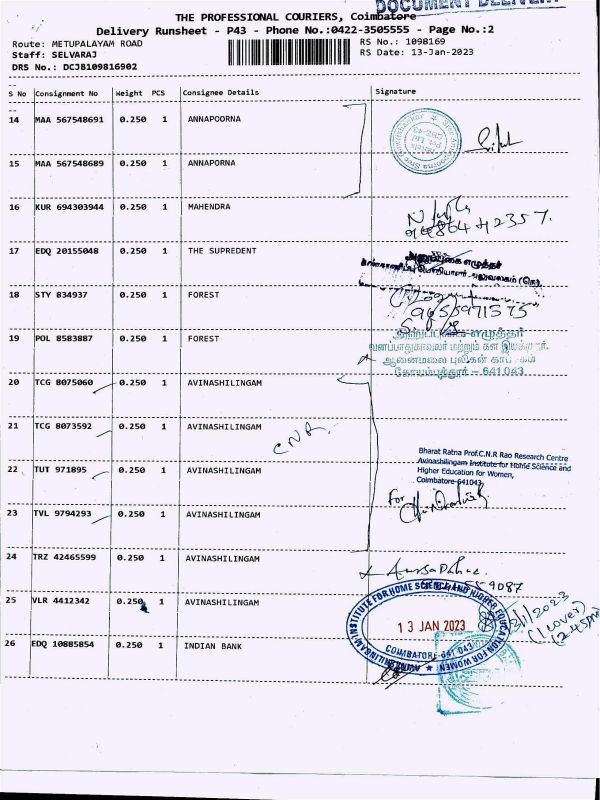 DOCUMENT DELIVERY
THE PROFESSIONAL COURIERS, Coimbatore
Delivery Runsheet - P43 - Phone No.:0422-3505555 - Page No.:2
Route: METUPALAYAM ROAD RS No.: 1098169
Staff: SELVARAJ RS Date: 13-Jan-2023
DRS No.: DCJB109816902
S No Consignment No Weight PCS Consignee Details Signature
14 MAA 567548691 0.250 1 ANNAPOORNA
15 MAA 567548689 0.250 1 ANNAPORNA
16 KUR 694303944 0.250 1 MAHENDRA
17 EDQ 20155048 0.250 1 THE SUPREDENT
அலுவலகம்
18 STY 834937 0.250 1 FOREST
9655971575
19 POL 8583887 0.250 1 FOREST
எழுத்தர்
வனப்பாதுகாவலர் மற்றும் கள இயக்குநர்,
ஆனைமலை புலிகள்
கோயம்புத்தூர் - 641 043.
20 TCG 8075060 0.250 1 AVINASHILINGAM
21 TCG 8073592 0.250 1 AVINASHILINGAM
CNR
Bharat Ratna Prof.C.N.R Rao Research Centre
Avinashilingam Institute for Home Science and
Higher Education for Women,
Coimbatore-641043.
22 TUT 971895 0.250 1 AVINASHILINGAM
For
23 TVL 9794293 0.250 1 AVINASHILINGAM
24 TRZ 42465599 0.250 1 AVINASHILINGAM
25 VLR 4412342 0.250 1 AVINASHILINGAM
AVINASHILINGAM INSTITUTE FOR HOME SCIENCE AND HIGHER EDUCATION FOR WOMEN
13 JAN 2023
COIMBATORE-641 043
(1 cover)
12.45pm
26 EDQ 10885854 0.250 1 INDIAN BANK